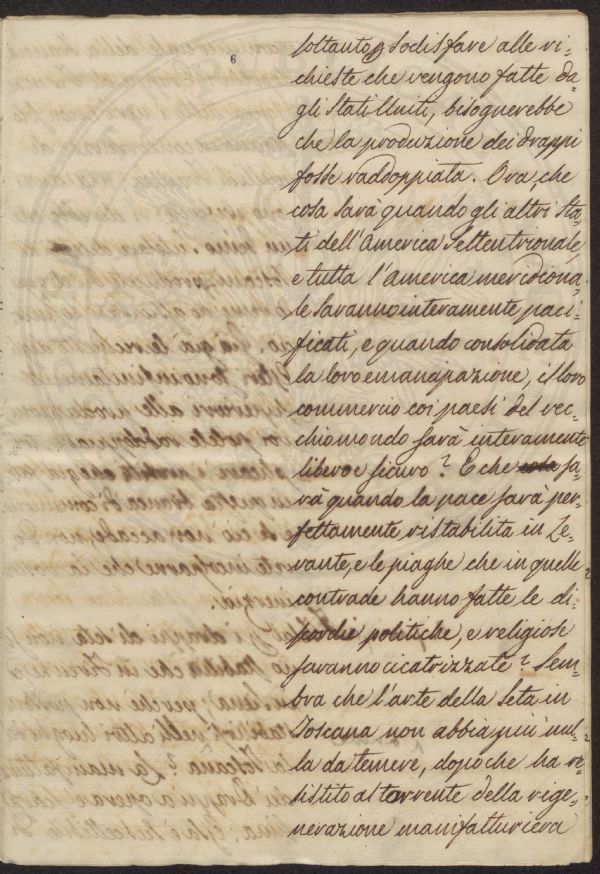 6
soltanto p sodisfare alle ri-
chieste che vengono fatte da-
gli Stati Uniti, bisognerebbe
che la produzione dei drappi
fosse raddoppiata. Ora, che
cosa sarà quando gli altri Sta-
ti dell'America Settentrionale,
e tutta l'America meridiona-
le saranno interamente paci-
ficati, e quando consolidata
la loro emancipazione, il loro
commercio coi paesi del vec-
chio mondo sarà interamente
libero e sicuro? E che sa-
rà quando la pace sarà per-
fettamente ristabilita in Le-
vante, e le piaghe che in quelle
contrade hanno fatte le di-
scordie politiche, e religiose
saranno cicatrizzate? Sem-
bra che l'arte della Seta in
Toscana non abbia più nul-
la da temere, dopo che ha re-
sistito al torrente della rige-
nerazione manifatturiera